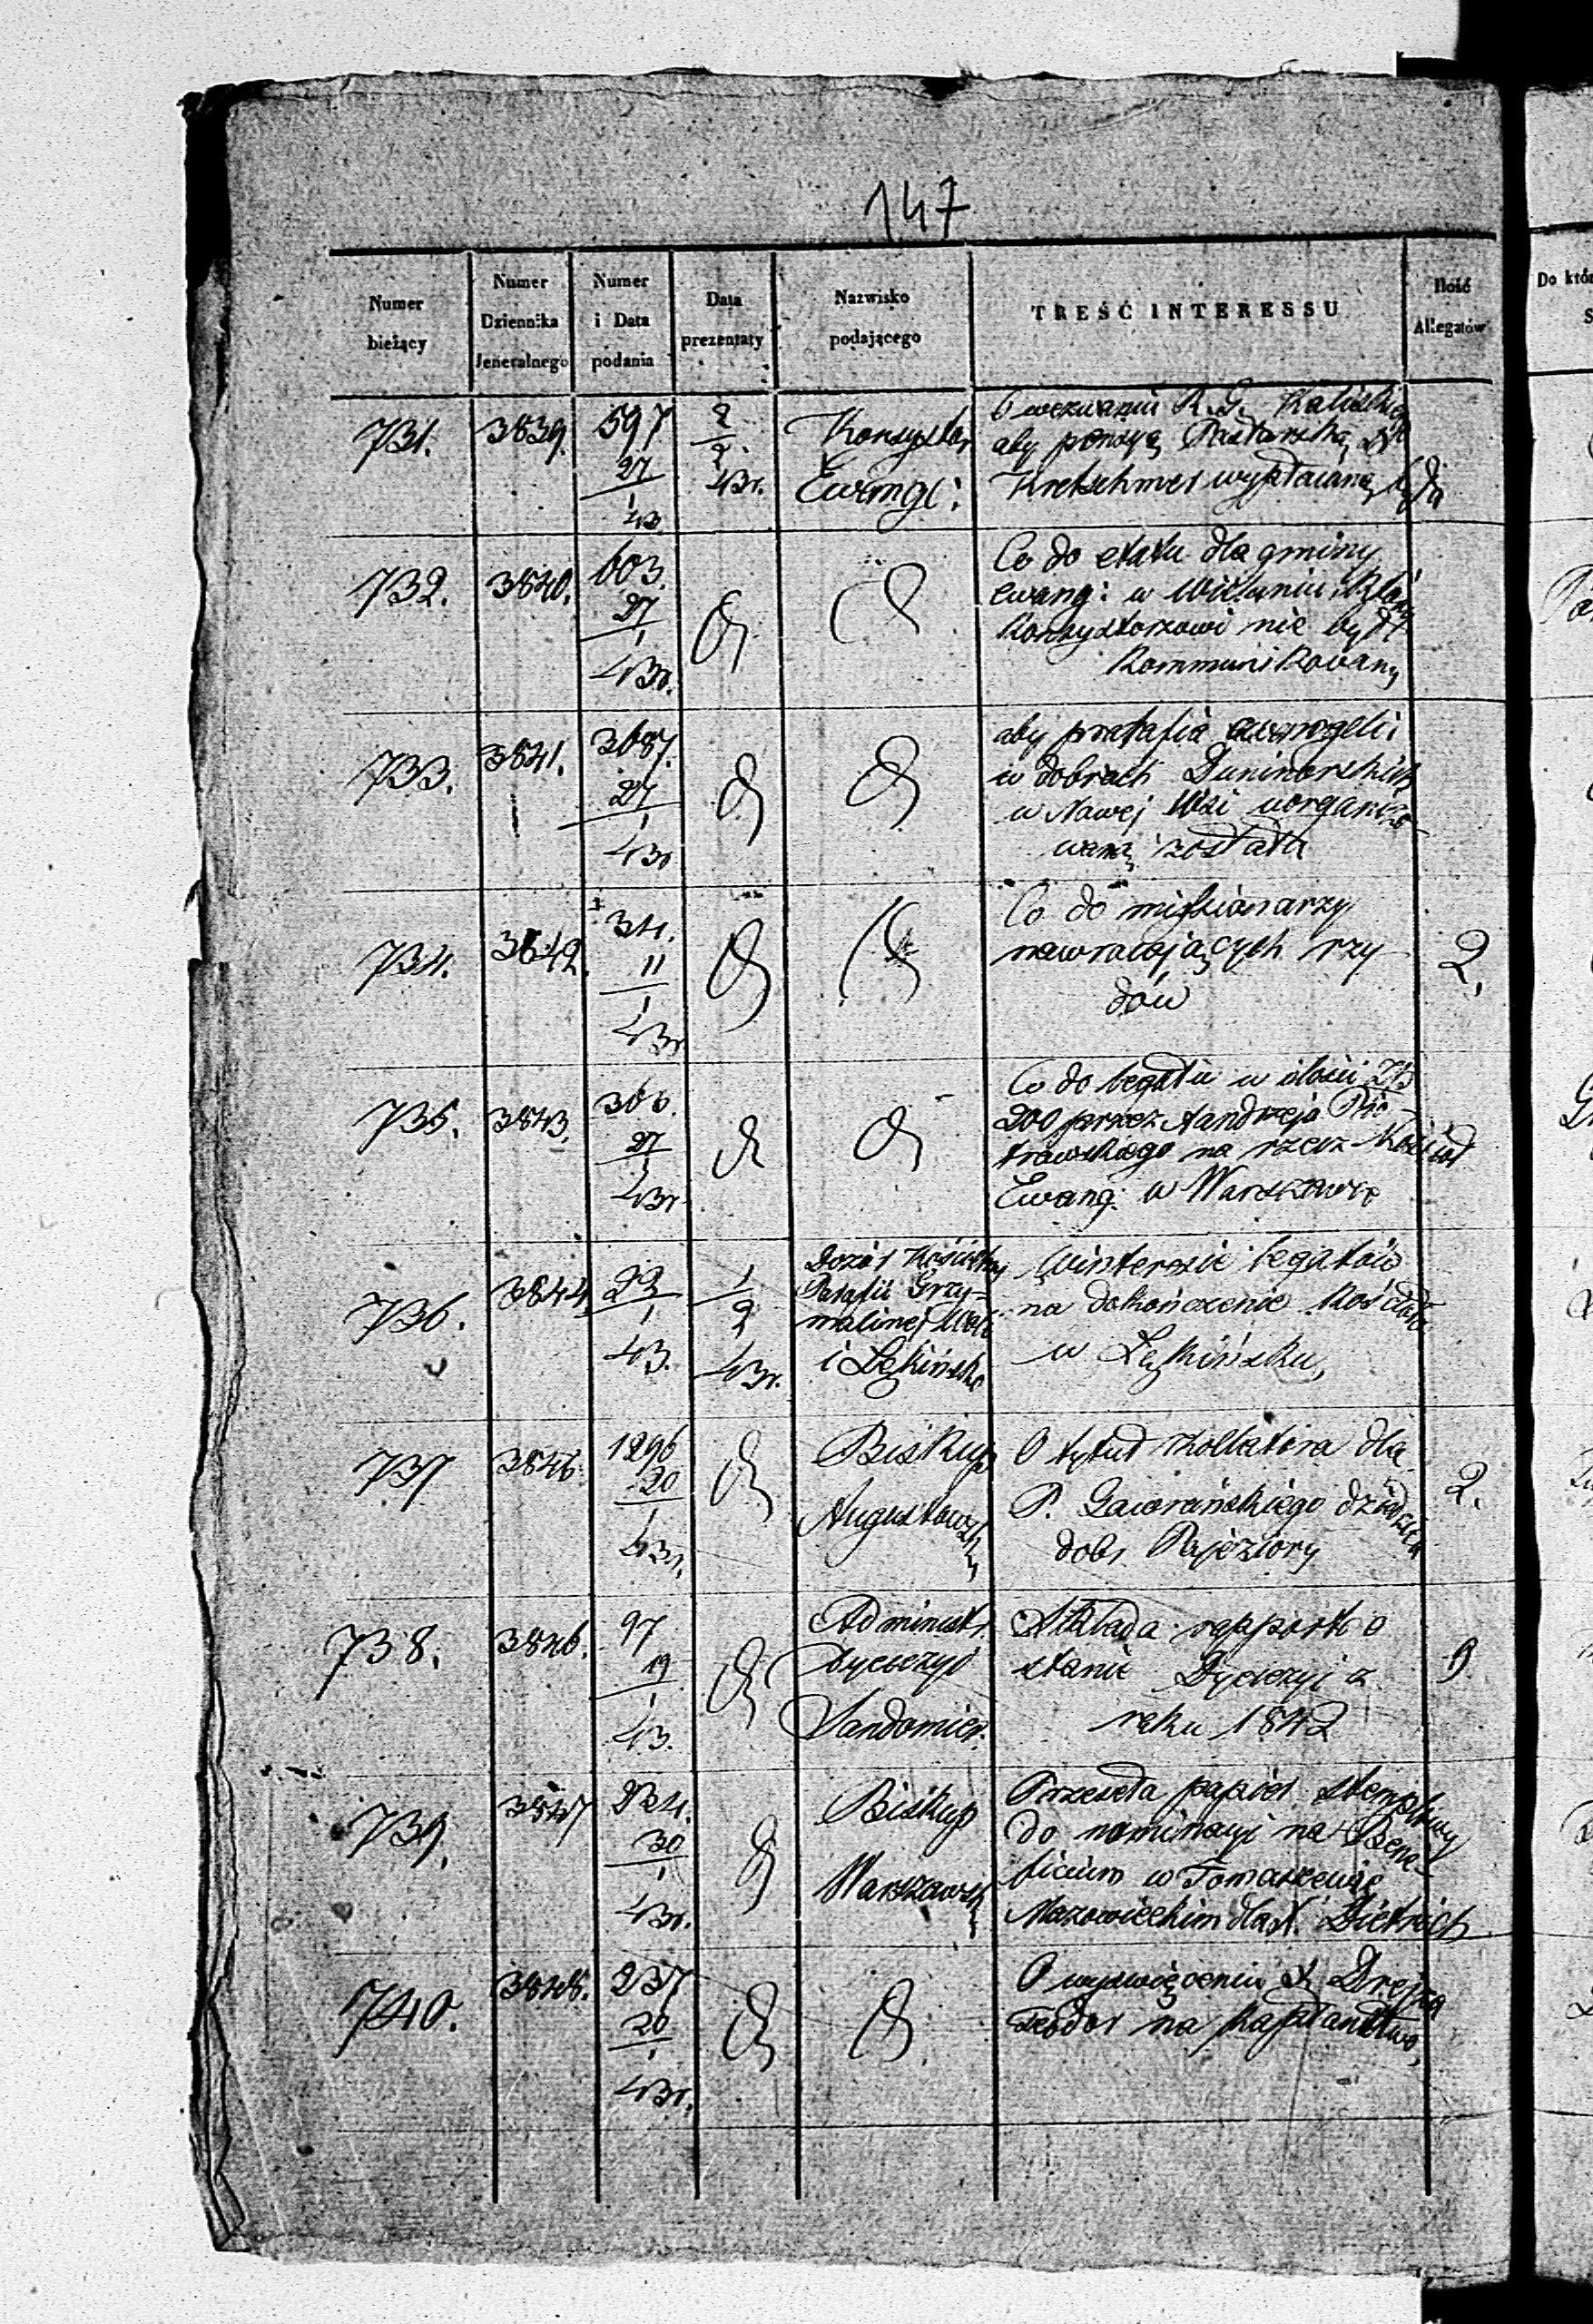 147
Numer bieżący | Numer Dziennika Jeneralnego | Numer i Data podania | Data prezentaty | Nazwisko podającego | TREŚĆ INTERESSU | Ilość Allegatów
731. 3839. 597 27/1 43 2/2 43r. Konsystor
Ewangi:
O wezwaniu R. G. Kaliskiej
aby pensya Pastorska
Kretschmer wypłacaną
732. 3840. 603. 27/1 43r.
Co do etatu dla gminy
ewang: w Wieluniu, który
Konsystorzowi nie był
Kommunikowany
733. 3841. 3687. 27/1 43r
aby parafia ewangeli:
w dobrach Duninowskich
w Nowej Wsi uorganizo
waną została
734. 3842. 34. 11/1 43r
Co do missionarzy
nawracających rzy
dów
2,
735. 3843. 366. 27/1 43r
Co do legatu w ilości Złp
200 przez Andrzeja Pio-
trowskiego na rzecz Kościoła
Ewang: w Warszawie
736. 3844 23/1 43. 1/2 43r.
Dozór Kościelny
Parafii Grzy-
malinej Woli
i Łękińsko
W interesie legatów
na dokończenie Kościoła
w Łękińsku,
737 3845 1296 20/1 43r.
Biskup
Augustowski
O tytuł Kollatora dla
P. Gaworańskiego dziedzica
dobr Rajeziory
2.
738. 3846. 97 19/1 43.
Administr.
Dyecezyi
Sandomier.
Składa rapport o
stanie Dyecezyi z
roku 1842
739. 3847 234. 30/1 43r.
Biskup
Warszawski
Przeseła papier stemplowy
do nominacyi na Bene-
ficium w Tomaszewie
Mazowieckim dla X. Dietrich
740. 3848. 237 20/1 43r.
O wyświęceniu X
Teodor na Kapłaństwo,
Do któr